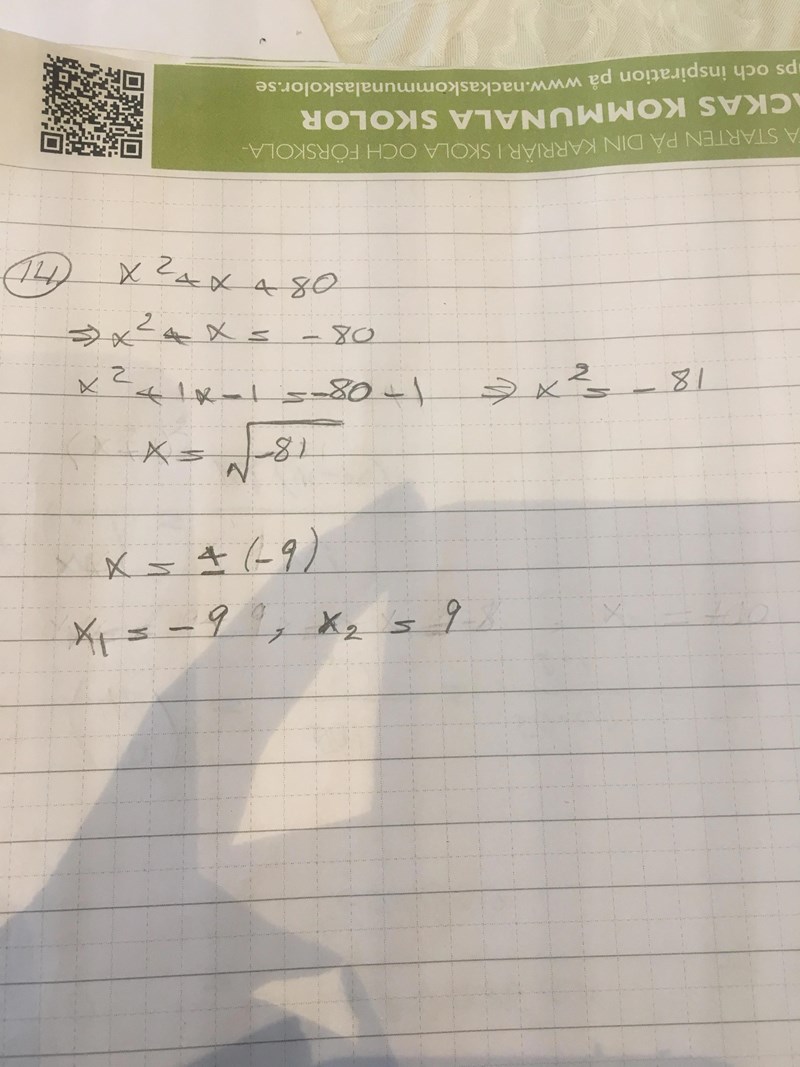 ps och inspiration på www.nackaskommunalaskolor.se
ACKAS KOMMUNALA SKOLOR
A STARTEN PÅ DIN KARRIÄR I SKOLA OCH FÖRSKOLA-
14 x² + x + 80
⇒ x² + x = -80
x² + 1x - 1 = -80 - 1 ⇒ x² = - 81
x = √-81
x = ± (-9)
x₁ = -9, x₂ = 9